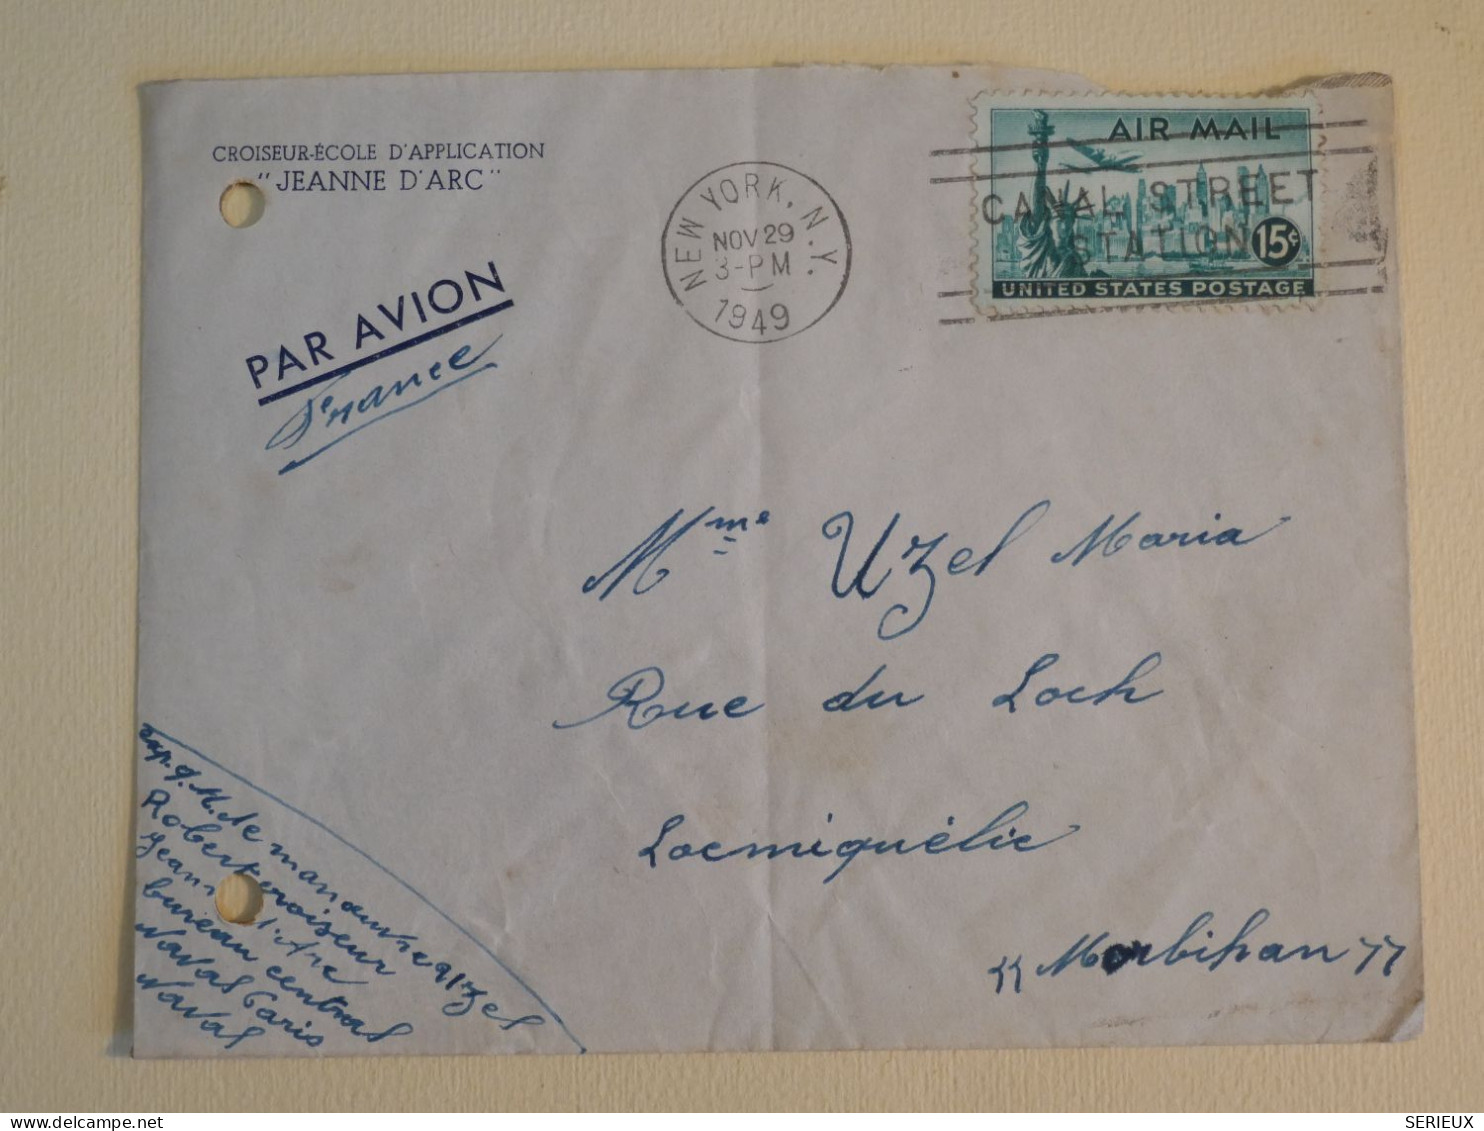 CROISEUR-ÉCOLE D'APPLICATION
"JEANNE D'ARC"
PAR AVION
France
NEW YORK, N.Y.
NOV 29
3-PM
1949
AIR MAIL
CANAL STREET
STATION
15¢
UNITED STATES POSTAGE
Mme Uzel Maria
Rue du Loch
Locmiquélic
"Morbihan"
exp. Q. M. de manœuvre Uzel
Robert croiseur
Jeanne d'Arc
bureau central
Naval Paris
Naval
SERIEUX
delcampe.net